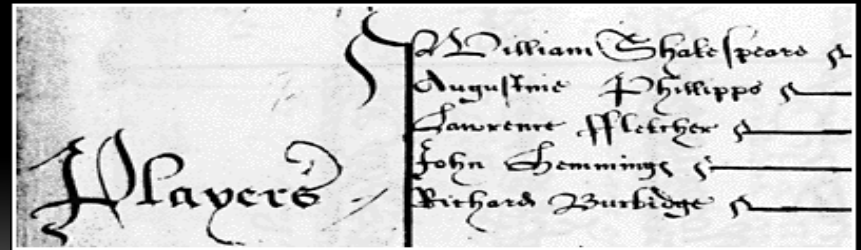 Players
William Shakespeare
Augustine Phillipps
Lawrence ffletcher
John Hemminges
Richard Burbidge